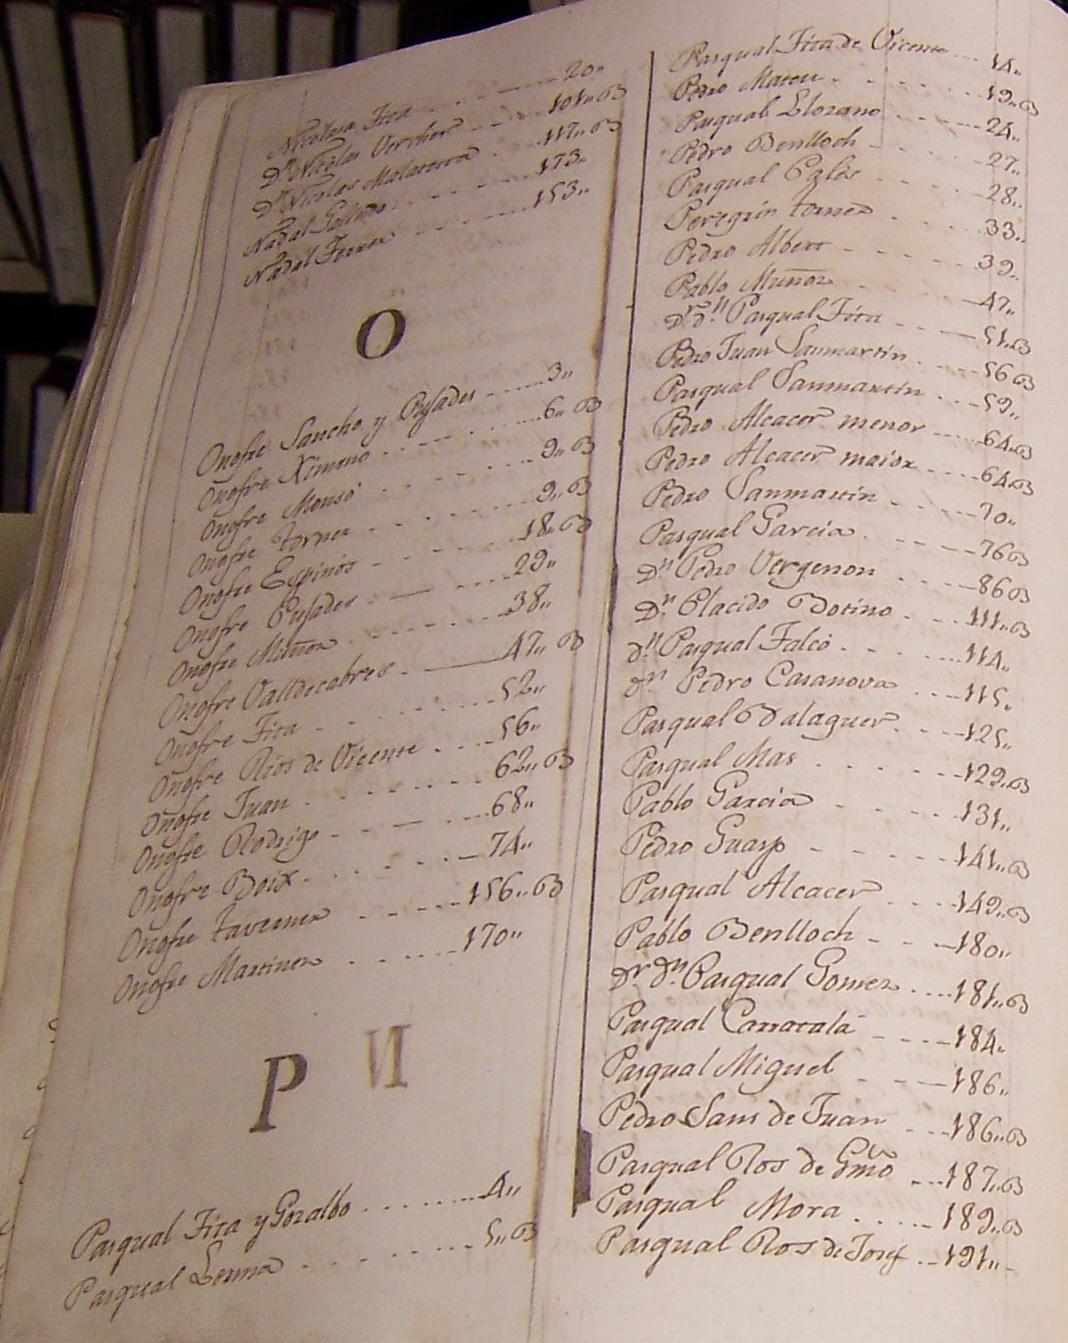 Nicolasa Fita 20,,
Dn Nicolas Vercher 101,, B
Dn Nicolas Malareria 117,, B
Nadal Galindo 173,,
Nadal Ferrer 153,,
O
Onofre Sancho y Pujades 3,,
Onofre Ximeno 6,, B
Onofre Monso 9,, B
Onofre Torner 9,, B
Onofre Espinós 18,, B
Onofre Pujades 29,,
Onofre Muñoz 38,,
Onofre Valldecabres 47,, B
Onofre Fita 52,,
Onofre Rios de Vicente 56,,
Onofre Juan 62,, B
Onofre Rodrigo 68,,
Onofre Boix 74,,
Onofre Taverner 156,, B
Onofre Martinez 170,,
P
Pasqual Fita y Goralbo 4,,
Pasqual Lerma 5,, B
Pasqual Fita de Vicente 14,,
Pedro Mateu 19,, B
Pasqual Llorano 24,,
Pedro Benlloch 27,,
Pasqual 28,,
Peregrin Torner 33,,
Pedro Albert 39,,
Pablo Muñoz 47,,
Dr Dn Pasqual Fita 51,, B
Pedro Juan Sanmartin 56 B
Pasqual Sanmartin 59,,
Pedro Alcacer menor 64,, B
Pedro Alcacer maior 64,, B
Pedro Sanmartin 70,,
Pasqual Garcia 76 B
Dn Pedro Vergeron 86 B
Dn Placido Botino 111,, B
Dn Pasqual Falcó 114,,
Dn Pedro Casanova 115,,
Pasqual Balaguer 125,,
Pasqual Mas 129,, B
Pablo Garcia 131,,
Pedro Guasp 141,, B
Pasqual Alcacer 149,, B
Pablo Benlloch 180,,
Dr Dn Pasqual Gomez 181,, B
Pasqual Carratalá 184,,
Pasqual Miguel 186,,
Pedro Sans de Juan 186,, B
Pasqual Ros de Gmo 187,, B
Pasqual Mora 189,, B
Pasqual Ros de Josef 191,,